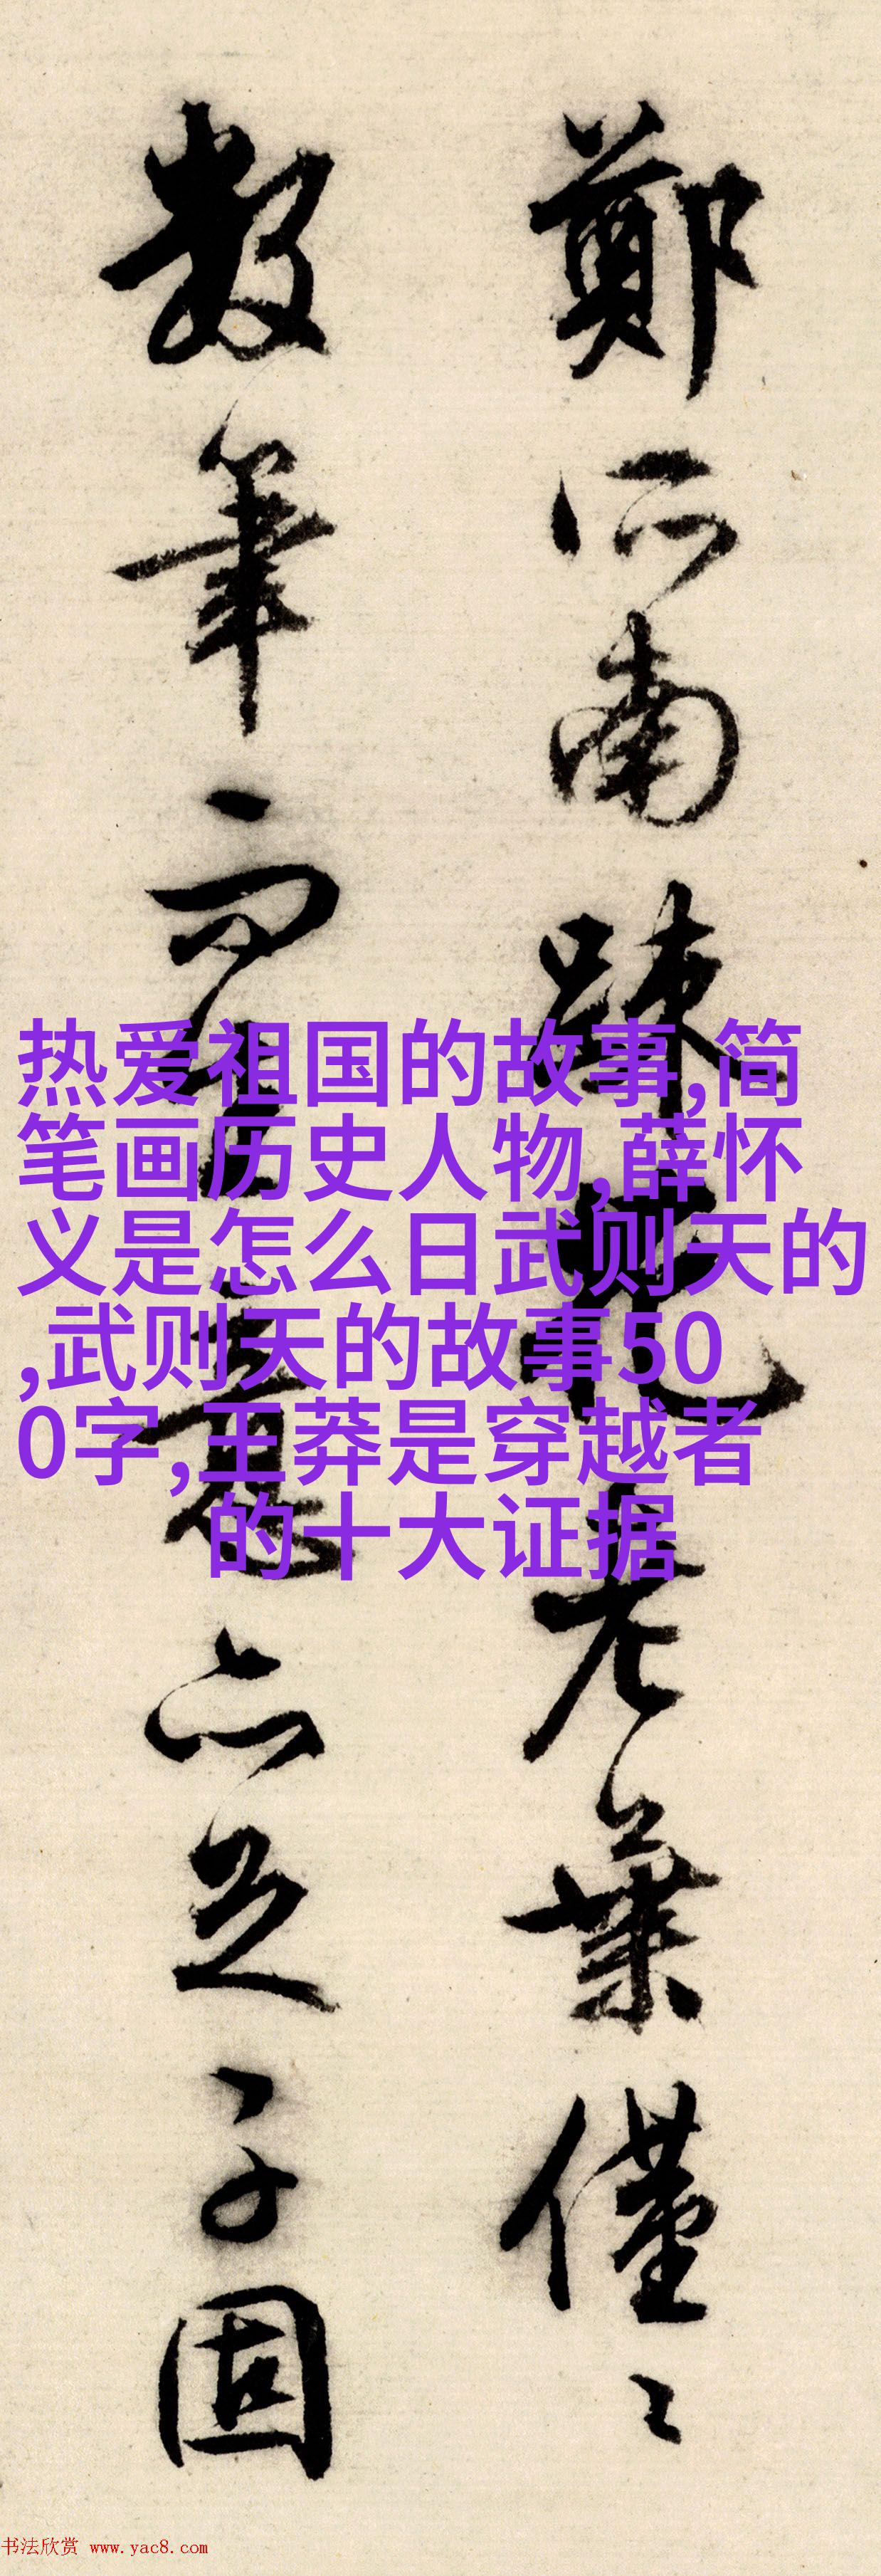 鄭所南疎花老葉僅〻
數筆而生意亦足子固
热爱祖国的故事,简
笔画历史人物,薛怀
义是怎么日武则天的
,武则天的故事50
0字,王莽是穿越者
的十大证据
书法欣赏 www.yac8.com